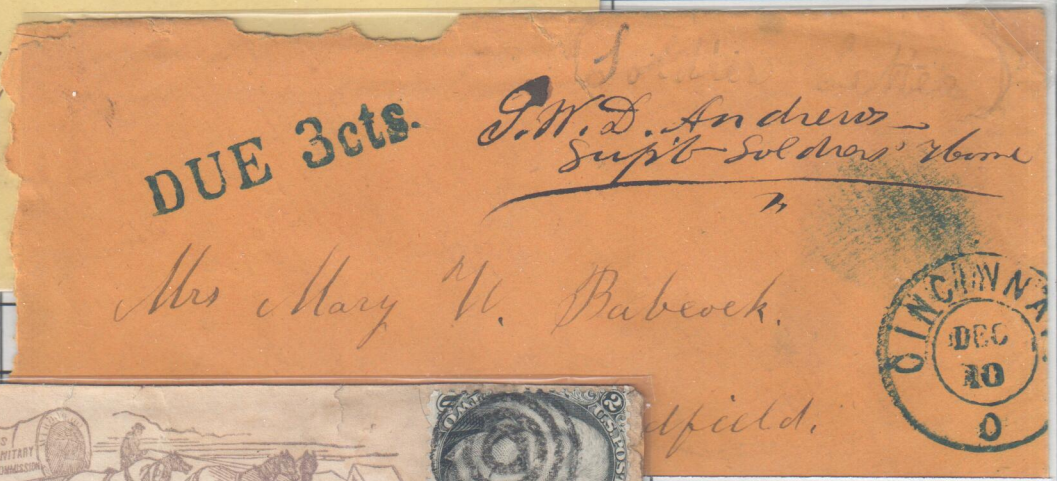 (Soldier Letter)
DUE 3cts.
G. W. D. Andrews
Sup't Soldiers' Home
Mrs Mary W. Babcock.
CINCINNA
DEC
10
O
dfield.
S
NITARY
OMMISSION
2
U.S. POS